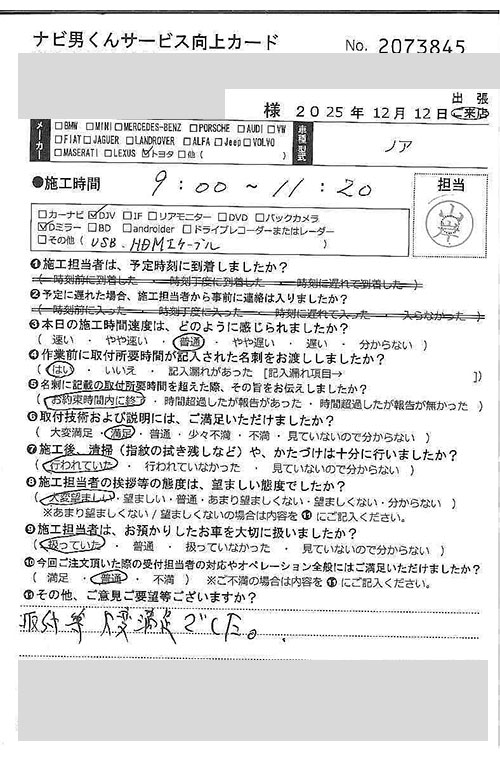 ナビ男くんサービス向上カード No. 2073845
様 2025年 12月 12日 出張・ご来店
メーカー □BMW □MINI □MERCEDES-BENZ □PORSCHE □AUDI □VW
□FIAT □JAGUER □LANDROVER □ALFA □Jeep □VOLVO
□MASERATI □LEXUS ☑トヨタ □他 ( )
車種型式 ノア
●施工時間 9:00~11:20 担当
□カーナビ ☑DJV □IF □リアモニター □DVD □バックカメラ
☑Dミラー □BD □androider □ドライブレコーダーまたはレーダー
□その他 ( USB、HDMIケーブル )
❶施工担当者は、予定時刻に到着しましたか?
( 時刻前に到着した ・ 時刻丁度に到着した ・ 時刻に遅れて到着した )
❷予定に遅れた場合、施工担当者から事前に連絡は入りましたか?
( 時刻前に入った ・ 時刻丁度に入った ・ 時刻に遅れて入った ・ 入らなかった )
❸本日の施工時間速度は、どのように感じられましたか?
( 速い ・ やや速い ・ 普通 ・ やや遅い ・ 遅い ・ 分からない )
❹作業前に取付所要時間が記入された名刺をお渡ししましたか?
( はい ・ いいえ ・ 記入漏れがあった [記入漏れ項目→ ])
❺名刺に記載の取付所要時間を超えた際、その旨をお伝えしましたか?
( お約束時間内に終了 ・ 時間超過したが報告があった ・ 時間超過したが報告が無かった )
❻取付技術および説明には、ご満足いただけましたか?
( 大変満足 ・ 満足 ・ 普通 ・ 少々不満 ・ 不満 ・ 見ていないので分からない )
❼施工後、清掃(指紋の拭き残しなど)や、かたづけは十分に行いましたか?
( 行われていた ・ 行われていなかった ・ 見ていないので分からない )
❽施工担当者の挨拶等の態度は、望ましい態度でしたか?
( 大変望ましい ・ 望ましい ・ 普通 ・ あまり望ましくない ・ 望ましくない ・ 分からない )
※あまり望ましくない / 望ましくないの場合は内容を⓫にご記入ください。
❾施工担当者は、お預かりしたお車を大切に扱いましたか?
( 扱っていた ・ 普通 ・ 扱っていなかった ・ 見ていないので分からない )
❿今回ご注文頂いた際の受付担当者の対応やオペレーション全般にはご満足いただけましたか?
( 満足 ・ 普通 ・ 不満 ) ※ご不満の場合は内容を⓫にご記入ください。
⓫その他、ご意見ご要望等ございますか?
取付等 大変満足でした。